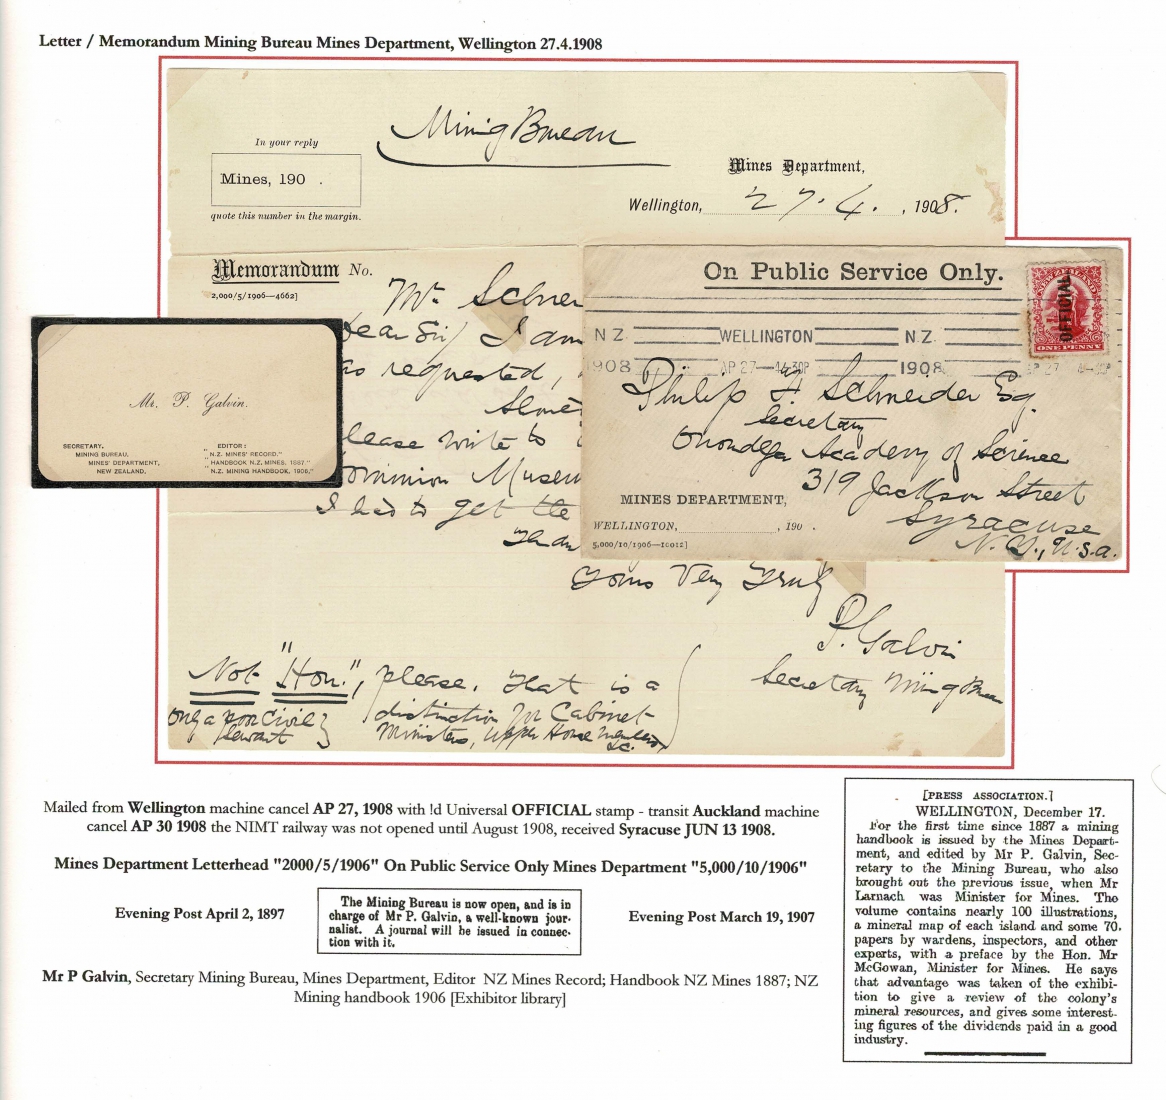 Letter / Memorandum Mining Bureau Mines Department, Wellington 27.4.1908
Mining Bureau
In your reply
Mines, 190 .
quote this number in the margin.
Mines Department,
Wellington, 27.4. , 1908.
Memorandum No.
2,000/5/1906—4662]
Mr. Schnei
Dear Sir/ I am
as requested,
lease write to
ominion Museu
I had to get the
Yours Very Truly
P. Galvin
Secretary Mining Bureau
Not "Hon.", please. That is a
distinction for Cabinet
Ministers, Upper House members
&c.
only a poor Civil
Servant
On Public Service Only.
OFFICIAL
ONE PENNY
N.Z. WELLINGTON N.Z.
1908 AP 27 —4.30P 1908
Philip F. Schneider Esq.
Secretary
Onondaga Academy of Science
319 Jackson Street
Syracuse
N.Y., U.S.A.
MINES DEPARTMENT,
WELLINGTON, , 190 .
5,000/10/1906—10012]
Mr. P. Galvin.
SECRETARY,
MINING BUREAU,
MINES' DEPARTMENT,
NEW ZEALAND.
EDITOR:
"N.Z. MINES' RECORD."
"HANDBOOK N.Z. MINES, 1887."
"N.Z. MINING HANDBOOK, 1906."
Mailed from Wellington machine cancel AP 27, 1908 with !d Universal OFFICIAL stamp - transit Auckland machine
cancel AP 30 1908 the NIMT railway was not opened until August 1908, received Syracuse JUN 13 1908.
Mines Department Letterhead "2000/5/1906" On Public Service Only Mines Department "5,000/10/1906"
Evening Post April 2, 1897
The Mining Bureau is now open, and is in
charge of Mr P. Galvin, a well-known jour-
nalist. A journal will be issued in connec-
tion with it.
Evening Post March 19, 1907
Mr P Galvin, Secretary Mining Bureau, Mines Department, Editor NZ Mines Record; Handbook NZ Mines 1887; NZ
Mining handbook 1906 [Exhibitor library]
[PRESS ASSOCIATION.]
WELLINGTON, December 17.
For the first time since 1887 a mining
handbook is issued by the Mines Depart-
ment, and edited by Mr P. Galvin, Sec-
retary to the Mining Bureau, who also
brought out the previous issue, when Mr
Larnach was Minister for Mines. The
volume contains nearly 100 illustrations,
a mineral map of each island and some 70
papers by wardens, inspectors, and other
experts, with a preface by the Hon. Mr
McGowan, Minister for Mines. He says
that advantage was taken of the exhibi-
tion to give a review of the colony's
mineral resources, and gives some interest-
ing figures of the dividends paid in a good
industry.